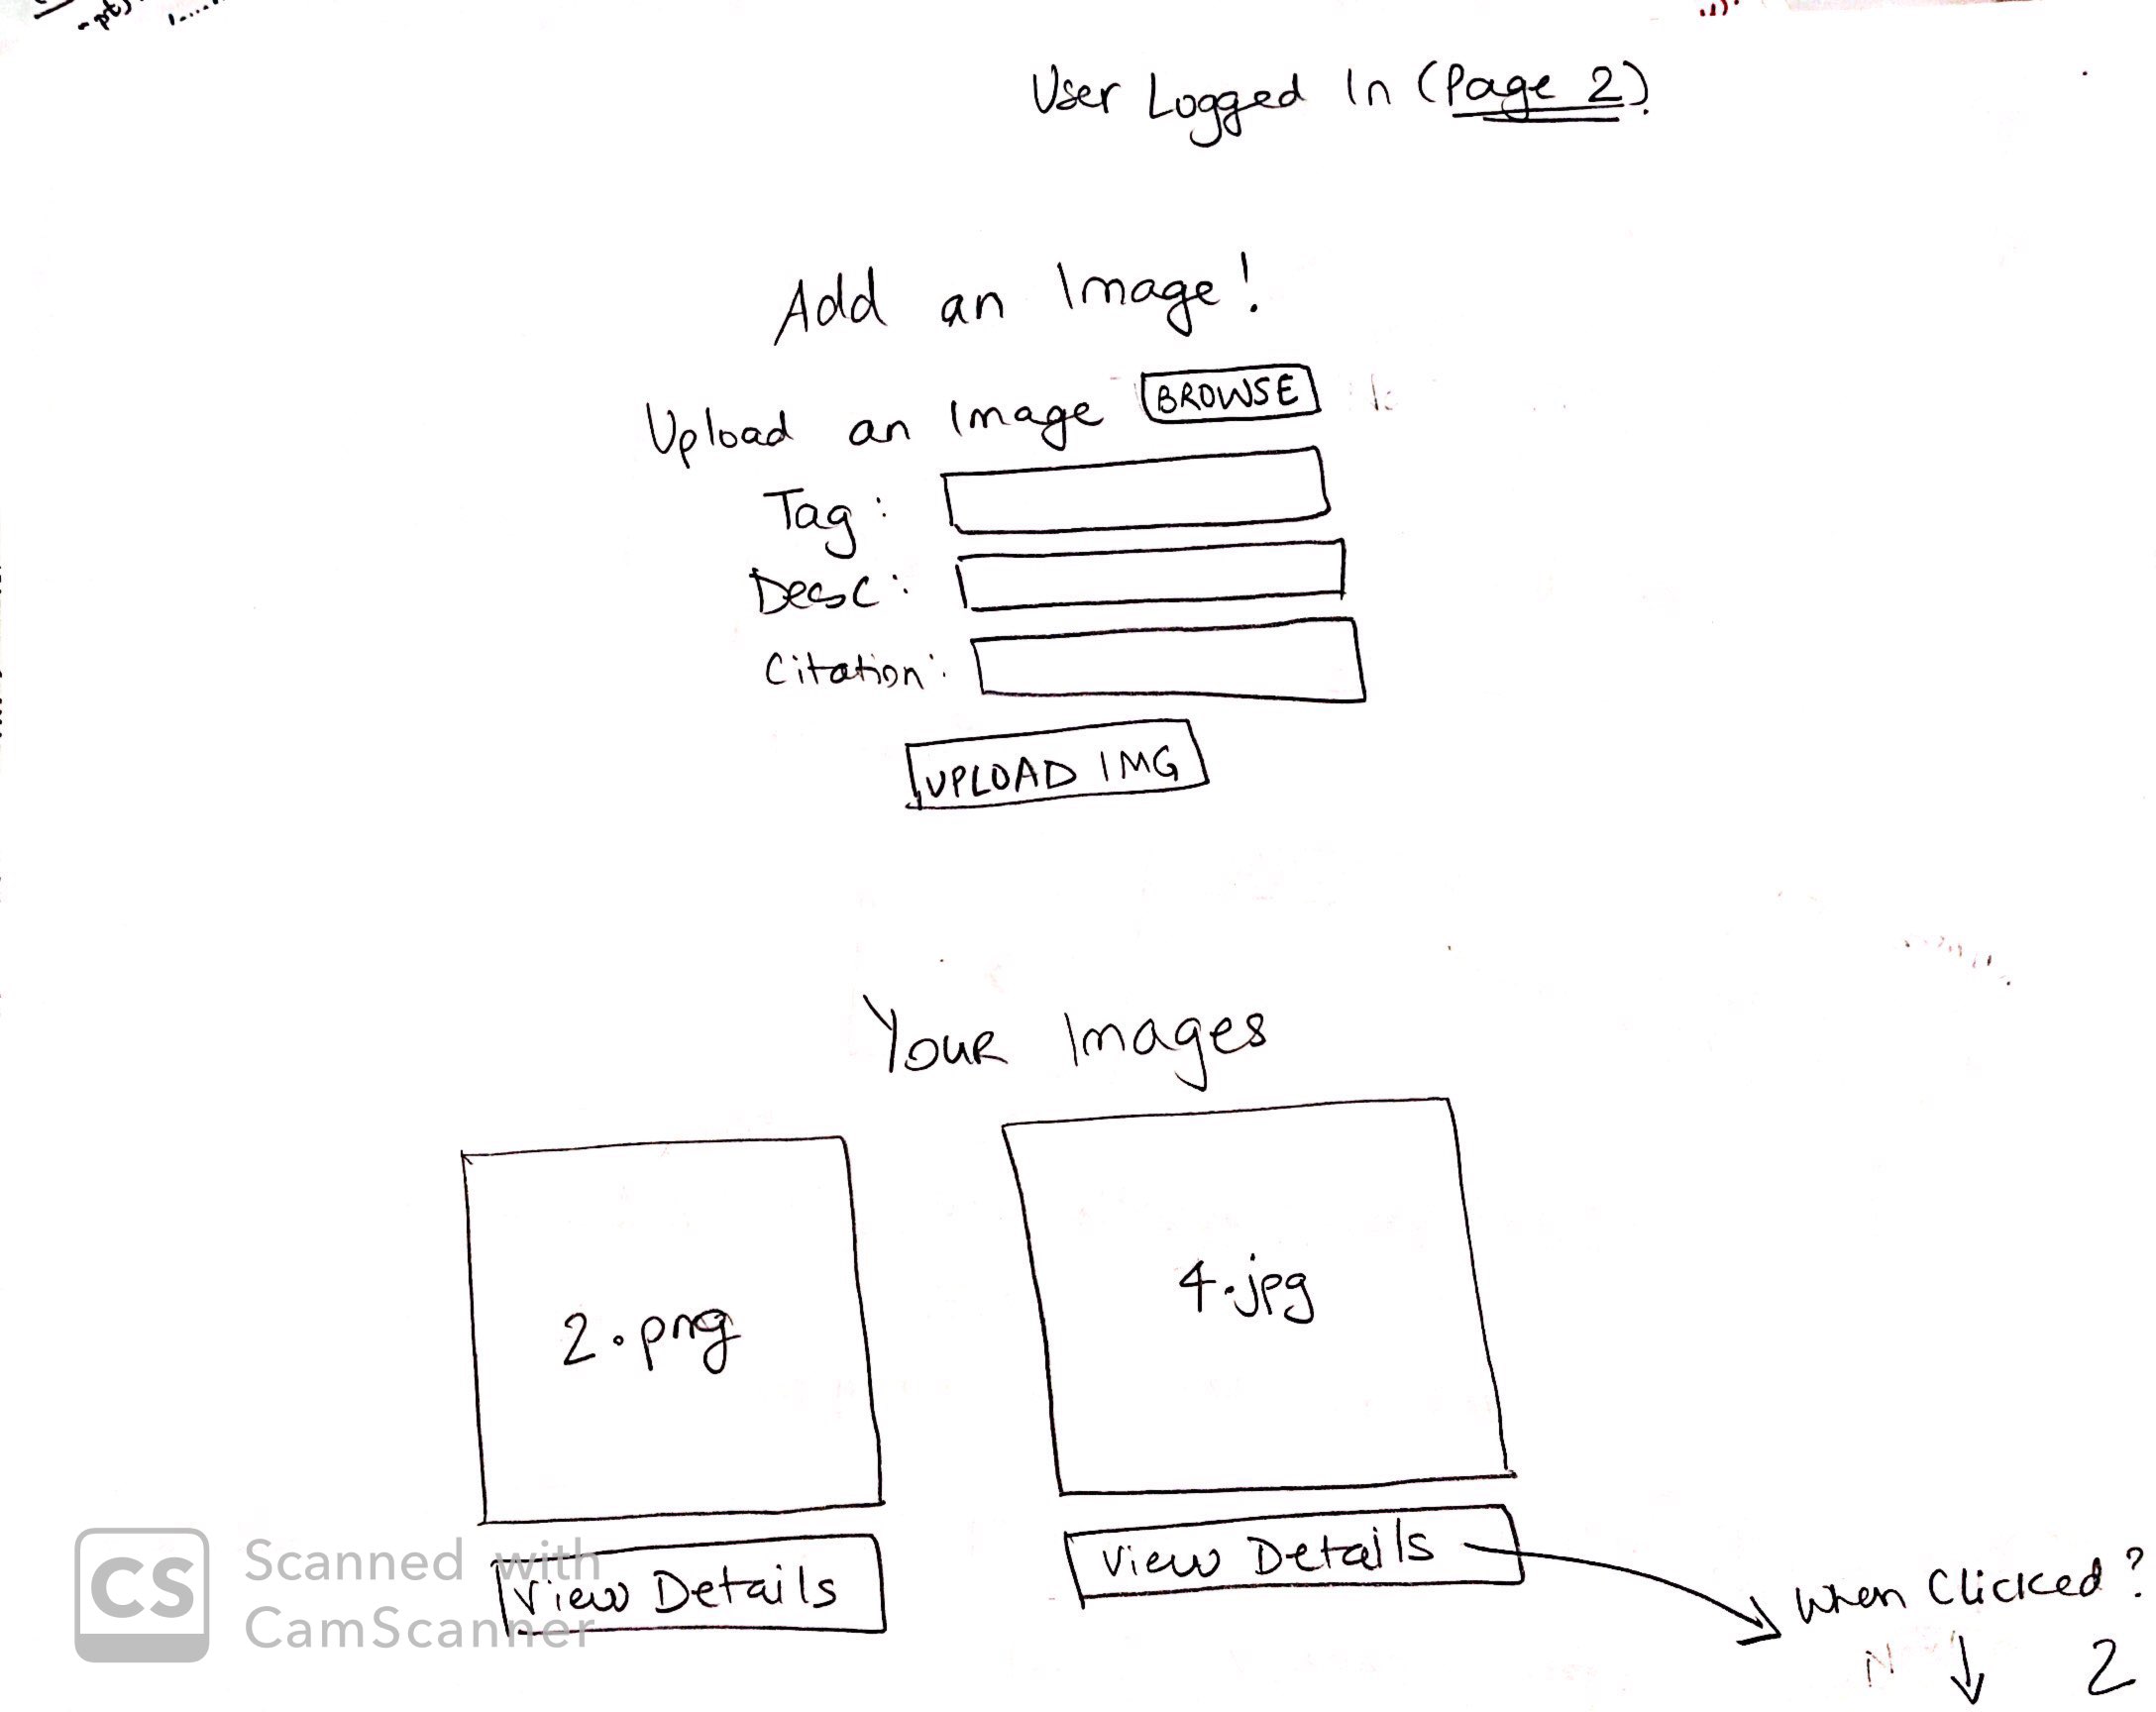 User Logged In (Page 2)
Add an Image!
Upload an Image BROWSE
Tag:
Desc:
Citation:
UPLOAD IMG
Your Images
2.png
4.jpg
View Details
View Details
When Clicked?
2
Scanned with
CamScanner
CS